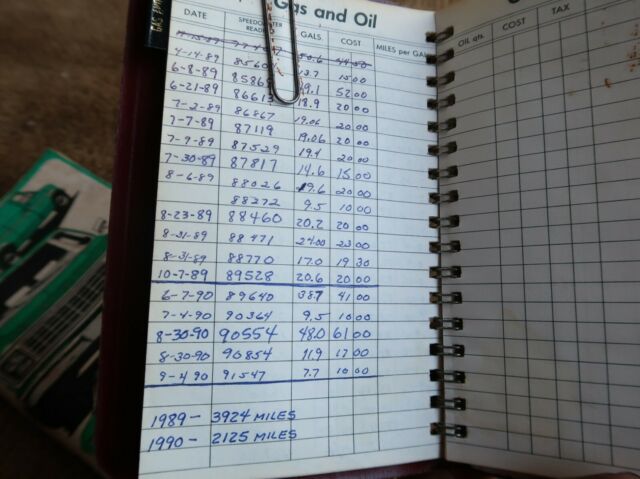 Gas and Oil
DATE GALS. COST MILES per GAL. OIL qts. COST TAX
4-14-89 13.7 15 00
6-8-89 52 00
6-21-89 86613 18.9 20 00
7-2-89 86867 19.06 20 00
7-7-89 87119 19.06 20 00
7-9-89 87529 19.4 20 00
7-30-89 87817 14.6 15 00
8-6-89 88026 19.6 20 00
88272 9.5 10 00
8-23-89 88460 20.2 20 00
8-31-89 88471 24.00 23 00
8-31-89 88770 17.0 19 30
10-7-89 89528 20.6 20 00
6-7-90 89640 38.7 41 00
7-4-90 90364 9.5 10 00
8-30-90 90554 48.0 61 00
8-30-90 90854 11.9 17 00
9-4 90 91547 7.7 10 00
1989 - 3924 MILES
1990 - 2125 MILES